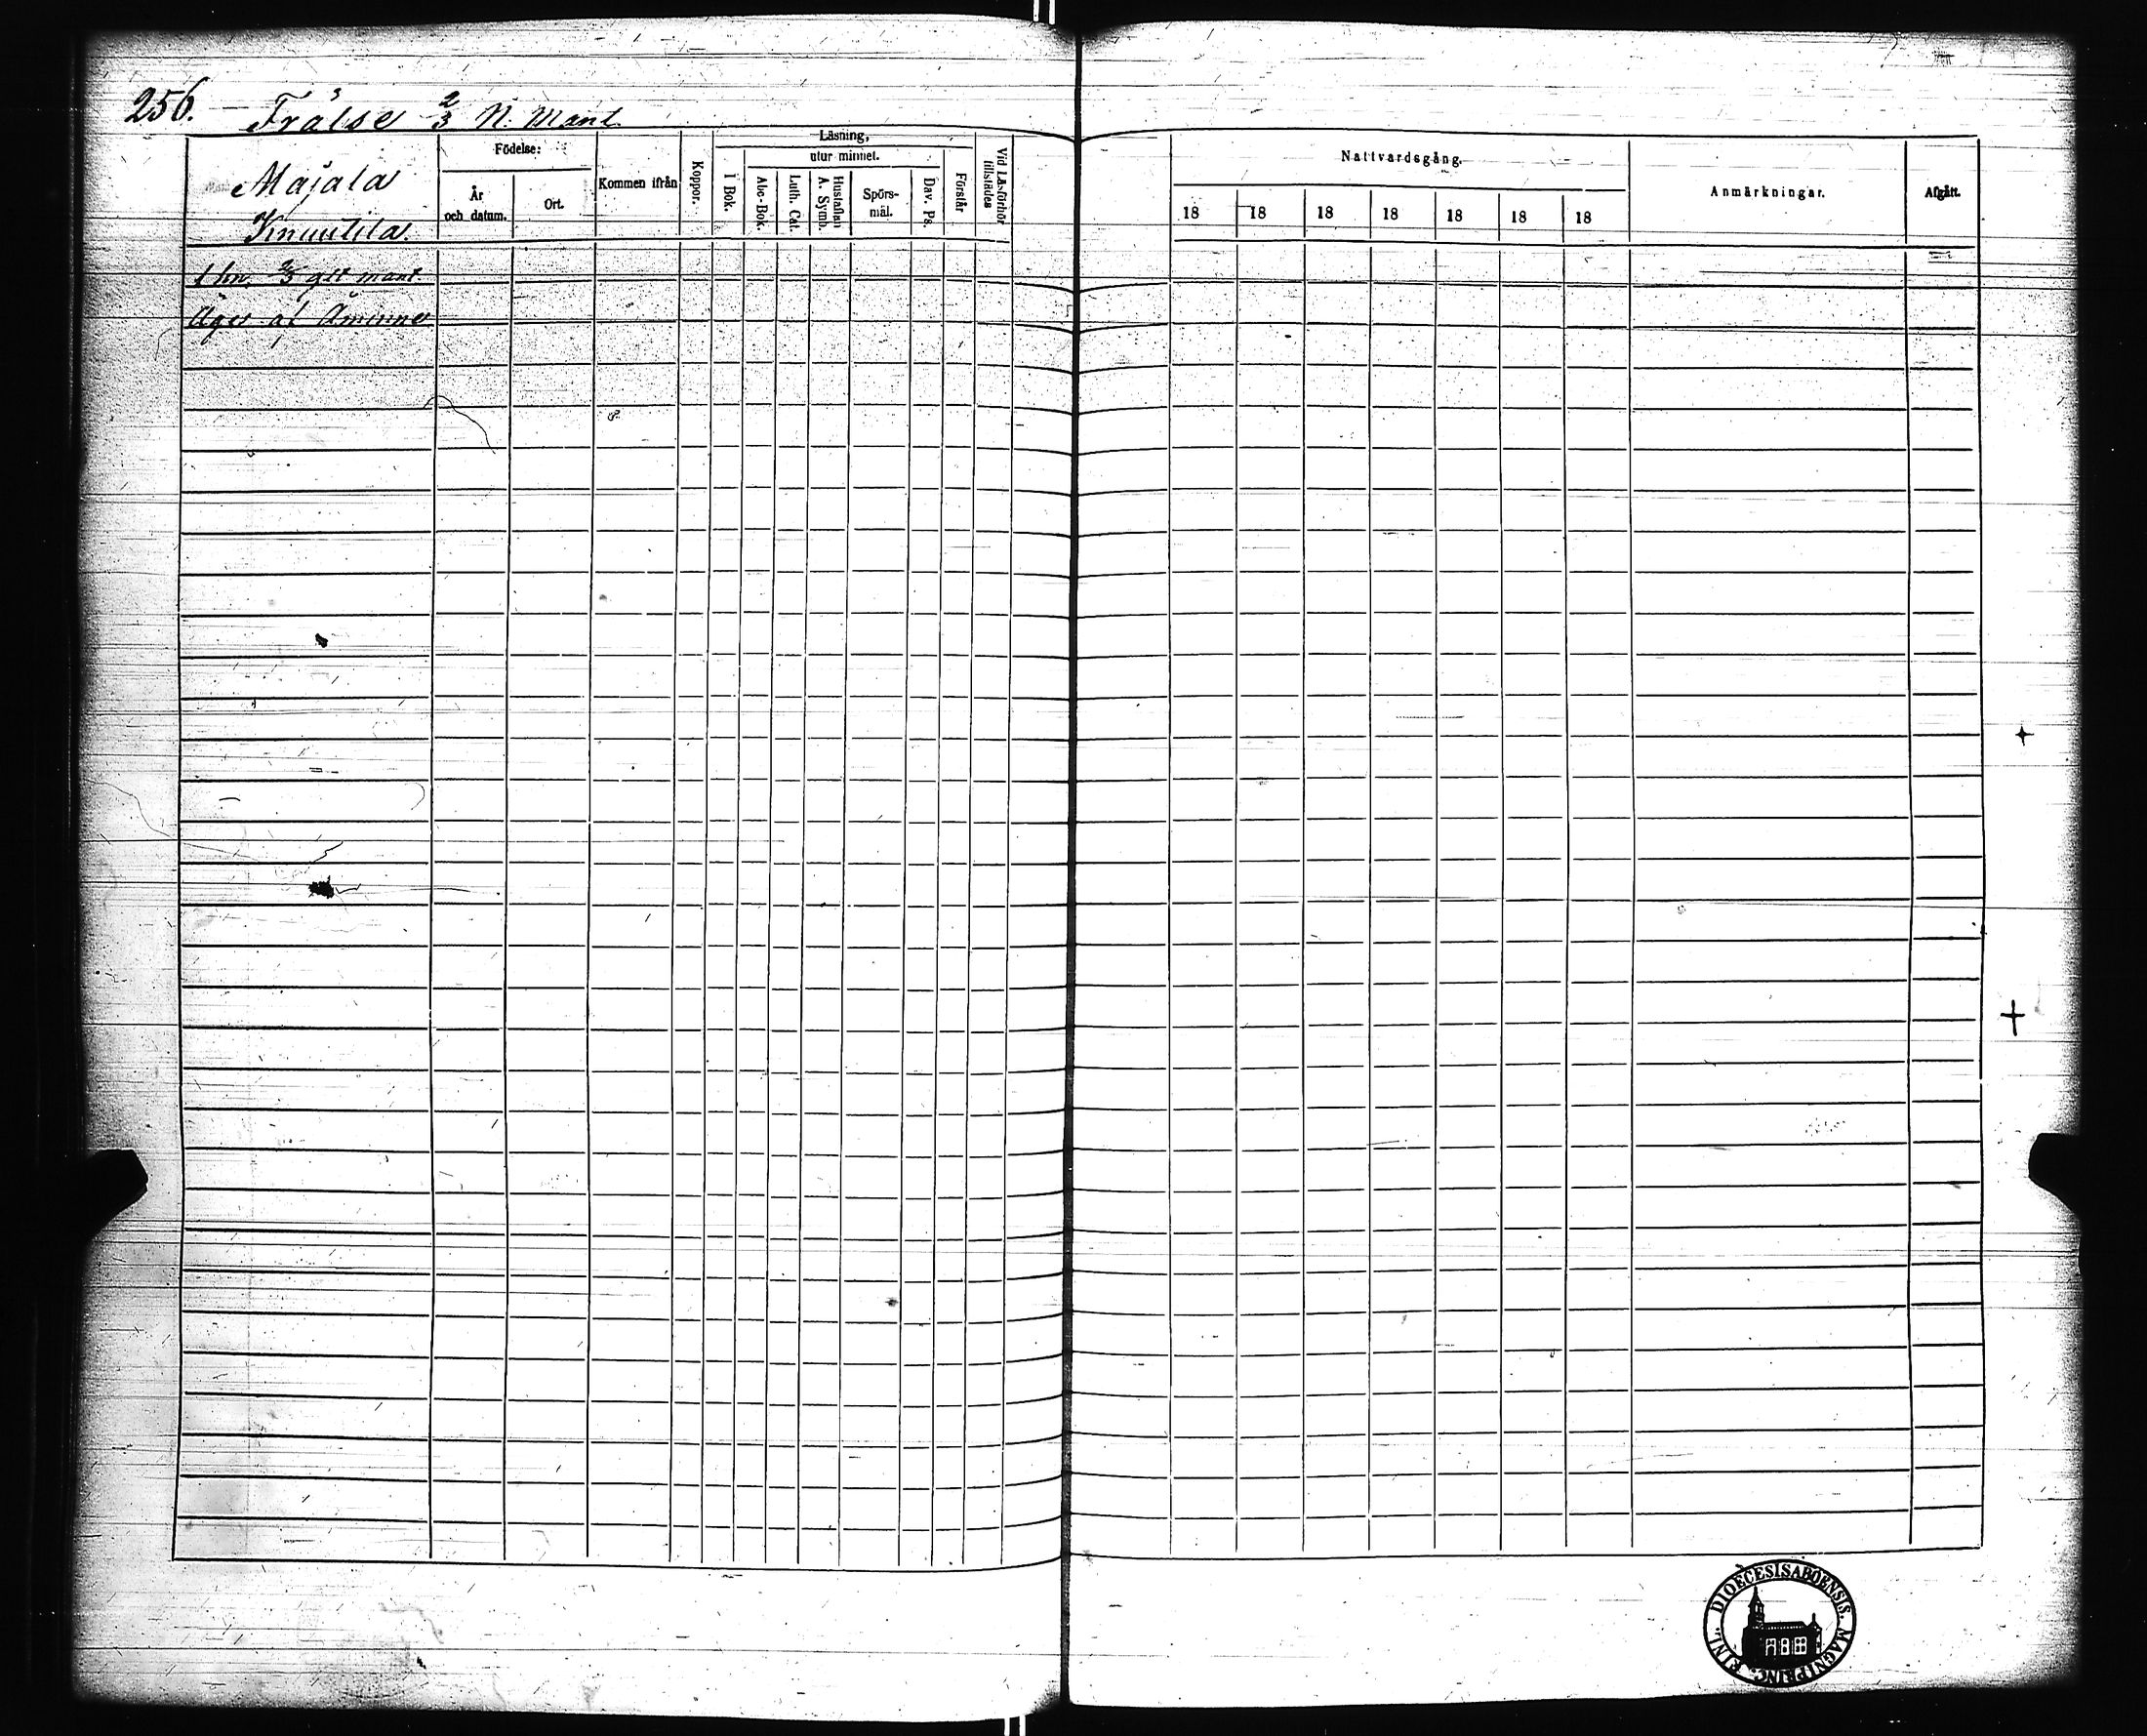 256. Frälse 2/3 N. Mant
Majala
Knuutila.
Födelse:
År och datum.
Ort.
Kommen ifrån
Koppor.
Läsning,
utur minnet.
I Bok.
Abc-Bok.
Luth. Cat.
Hustaflan A. Symb.
Spörs-mål.
Dav. Ps.
Förstår
Vid Läsförhör tillstädes
Nattvardsgång.
18 18 18 18 18 18 18
Anmärkningar.
Afgått.
1 hn. 2/3 glt mant.
Äges af Åminne
DIOECESIS ABOENSIS. MAGNI PRINC. FINL.